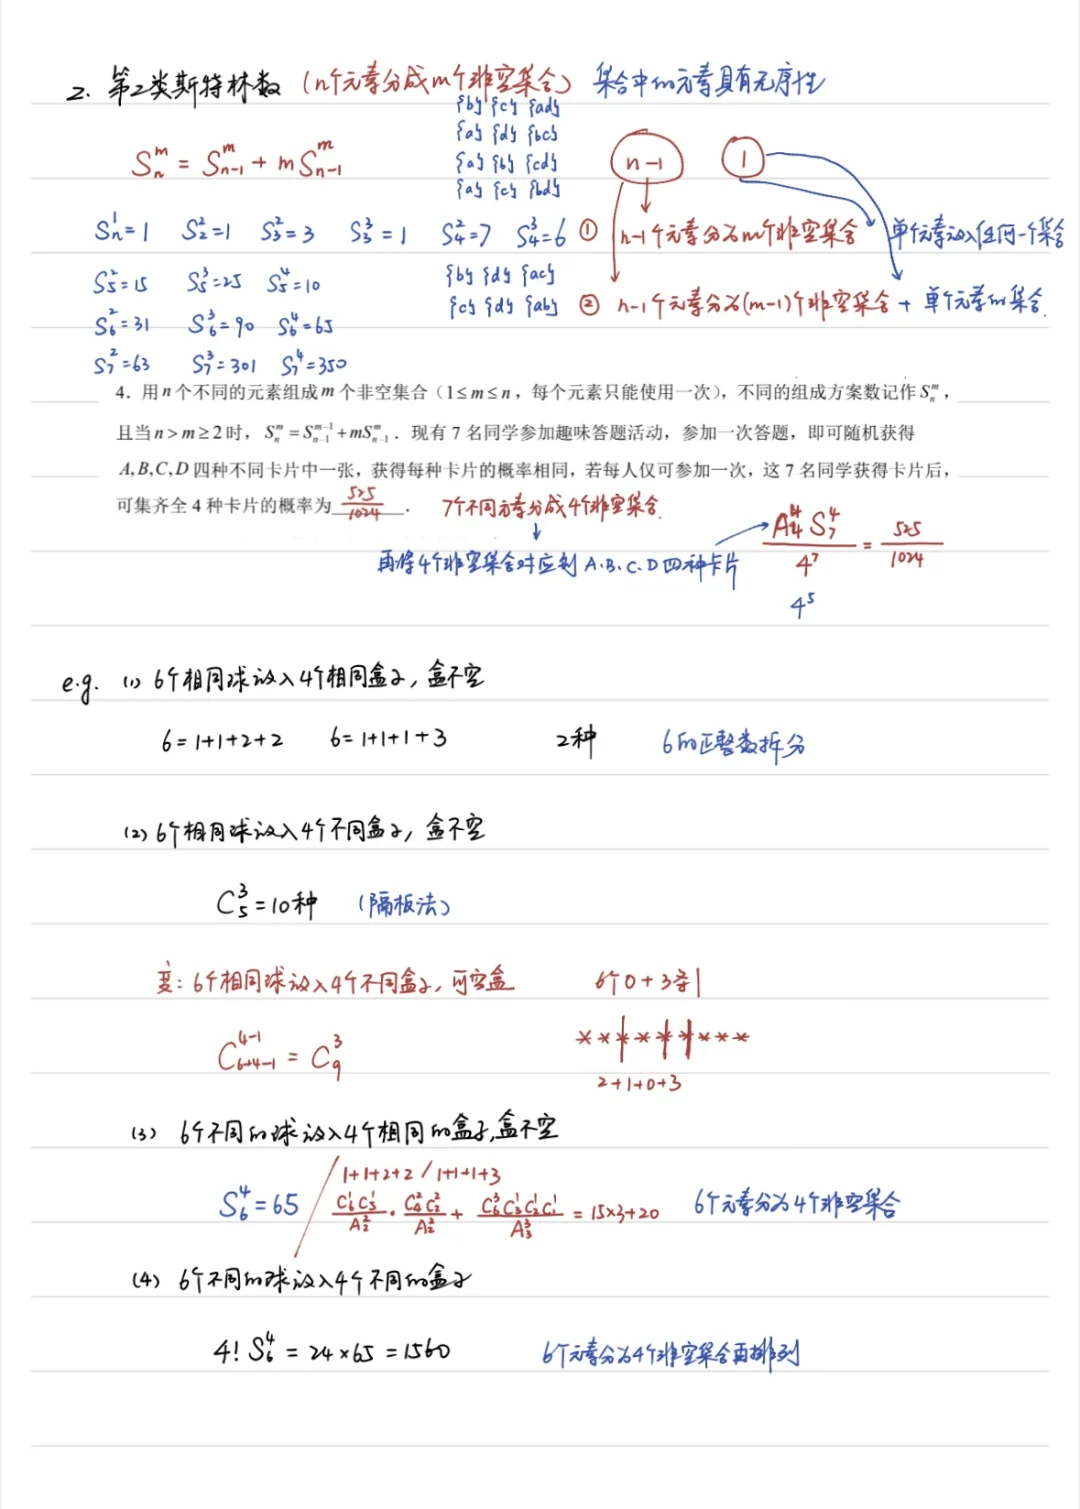 2. 第2类斯特林数 (n个元素分成m个非空集合) 集合中的元素具有无序性
{b} {c} {ad}
{a} {d} {bc}
{a} {b} {cd}
{a} {c} {bd}
S_n^m = S_{n-1}^m + m S_{n-1}^m
n-1 1
S_n^1=1 S_2^2=1 S_3^2=3 S_3^3=1 S_4^2=7 S_4^3=6
① n-1个元素分为m个非空集合 单元素放入任何一个集合
{b} {d} {ac}
{c} {d} {ab}
S_5^2=15 S_5^3=25 S_5^4=10
② n-1个元素分为(m-1)个非空集合 + 单个元素的集合.
S_6^2=31 S_6^3=90 S_6^4=65
S_7^2=63 S_7^3=301 S_7^4=350
4. 用n个不同的元素组成m个非空集合（1≤m≤n，每个元素只能使用一次），不同的组成方案数记作S_n^m，
且当n>m≥2时，S_n^m=S_{n-1}^{m-1}+mS_{n-1}^m．现有7名同学参加趣味答题活动，参加一次答题，即可随机获得
A,B,C,D四种不同卡片中一张，获得每种卡片的概率相同，若每人仅可参加一次，这7名同学获得卡片后，
可集齐全4种卡片的概率为 525/1024 ．
7个不同元素分成4个非空集合.
↓
再将4个非空集合对应到A.B.C.D四种卡片
A_4^4 S_7^4 / 4^7 = 525/1024
4^5
e.g. (1) 6个相同球放入4个相同盒子, 盒不空
6=1+1+2+2 6=1+1+1+3 2种 6的正整数拆分
(2) 6个相同球放入4个不同盒子, 盒不空
C_5^3=10种 (隔板法)
变: 6个相同球放入4个不同盒子, 可空盒 6个0+3条|
C_{6+4-1}^{4-1} = C_9^3
* * * * * * * * *
2+1+0+3
(3) 6个不同的球放入4个相同的盒子,盒不空
1+1+2+2 / 1+1+1+3
S_6^4=65 C_6^1 C_5^1 / A_2^2 · C_4^2 C_2^2 / A_2^2 + C_6^3 C_3^1 C_2^1 C_1^1 / A_3^3 = 15×3+20 6个元素分为4个非空集合
(4) 6个不同的球放入4个不同的盒子
4! S_6^4 = 24×65 = 1560 6个元素分为4个非空集合再排列